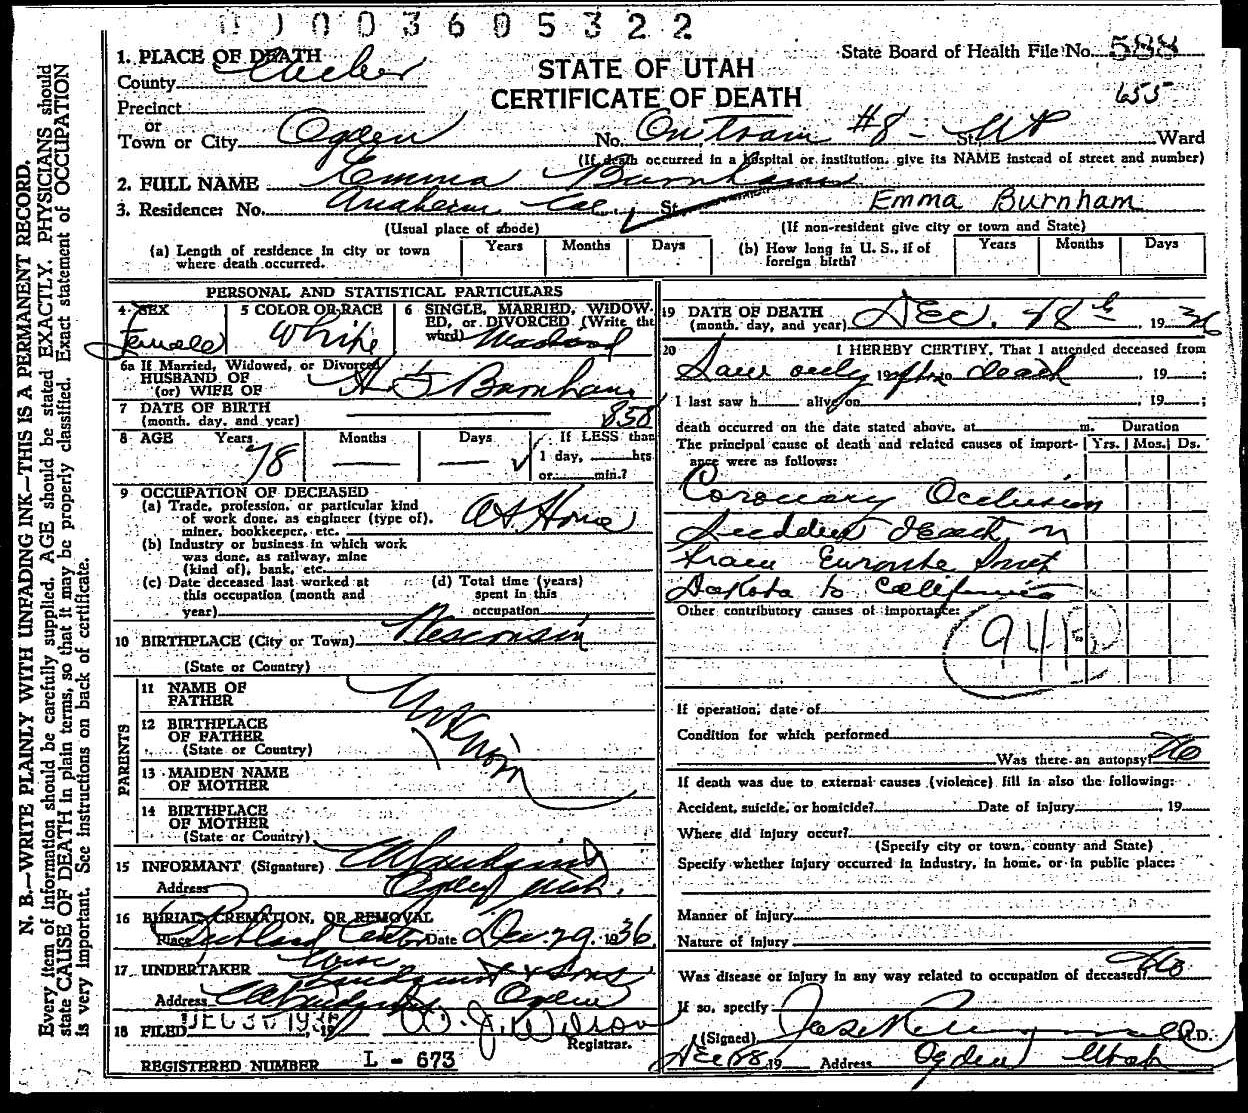 0 0 0 3 6 0 5 3 2 2
1. PLACE OF DEATH
County Weber
State Board of Health File No. 588
655
STATE OF UTAH
CERTIFICATE OF DEATH
Precinct
or
Town or City Ogden No. On Train #8 - St. UP Ward
(If death occurred in a hospital or institution, give its NAME instead of street and number)
2. FULL NAME Emma Burnham
3. Residence: No. Anaheim, Cal St. Emma Burnham
(Usual place of abode) (If non-resident give city or town and State)
(a) Length of residence in city or town where death occurred. Years Months Days
(b) How long in U. S., if of foreign birth? Years Months Days
PERSONAL AND STATISTICAL PARTICULARS
4 SEX Female
5 COLOR OR RACE White
6 SINGLE, MARRIED, WIDOWED, or DIVORCED (Write the word)
6a If Married, Widowed, or Divorced
HUSBAND OF
(or) WIFE OF Burnham
7 DATE OF BIRTH
(month, day, and year) 858
8 AGE Years 78 Months — Days — If LESS than
1 day, hrs.
or min.?
9 OCCUPATION OF DECEASED
(a) Trade, profession, or particular kind
of work done, as engineer (type of),
miner, bookkeeper, etc. At Home
(b) Industry or business in which work
was done, as railway, mine
(kind of), bank, etc.
(c) Date deceased last worked at
this occupation (month and
year)
(d) Total time (years)
spent in this
occupation
10 BIRTHPLACE (City or Town) Wisconsin
(State or Country)
PARENTS
11 NAME OF
FATHER
12 BIRTHPLACE
OF FATHER
(State or Country)
13 MAIDEN NAME
OF MOTHER
14 BIRTHPLACE
OF MOTHER
(State or Country)
15 INFORMANT (Signature)
Address Ogden Utah.
16 BURIAL, CREMATION, OR REMOVAL
Place Richland Center Date Dec. 29. 1936.
Wisc
17 UNDERTAKER & Sons
Address Ogden
18 FILED DEC 30 1936, 19 W. J. Wilson
Registrar.
REGISTERED NUMBER L - 673
19 DATE OF DEATH
(month, day, and year) Dec. 28th, 1936
20 I HEREBY CERTIFY, That I attended deceased from
Saw only 19 after to death, 19 ;
I last saw h alive on , 19 ;
death occurred on the date stated above, at m. Duration
The principal cause of death and related causes of importance were as follows: Yrs. Mos. Ds.
Coronary Occlusion
Sudden death on
train Enroute South
Dakota to California
Other contributory causes of importance:
94B
If operation, date of
Condition for which performed
Was there an autopsy? No
If death was due to external causes (violence) fill in also the following:
Accident, suicide, or homicide? Date of injury , 19
Where did injury occur?
(Specify city or town, county and State)
Specify whether injury occurred in industry, in home, or in public place:
Manner of injury
Nature of injury
Was disease or injury in any way related to occupation of deceased? No
If so, specify
(Signed) M.D.
Dec 28, 19 Address Ogden Utah
N. B.—WRITE PLAINLY WITH UNFADING INK—THIS IS A PERMANENT RECORD.
Every item of information should be carefully supplied. AGE should be stated EXACTLY. PHYSICIANS should
state CAUSE OF DEATH in plain terms, so that it may be properly classified. Exact statement of OCCUPATION
is very important. See instructions on back of certificate.